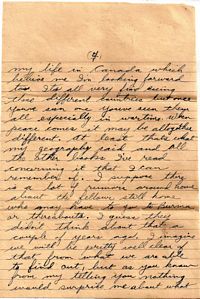 (4)
my life in Canada which
believe me I'm looking forward
too. Its all very fine seeing
these different countries but once
you've seen one you've seen them
all especially in wartime. When
peace comes it may be altogether
different. At least that's what
my geography said and all
the other books I've read
concerning it that I can
remember of. I suppose there
is a lot of rumors around home
about the fellows still home
who may have to go to Burma
or thereabouts. I guess they
didn't think about that a
couple of years ago. I imagine
we will be pretty well clear of
that from what we are able
to find out, but as you know
from my telling you nothing
would surprise me about what